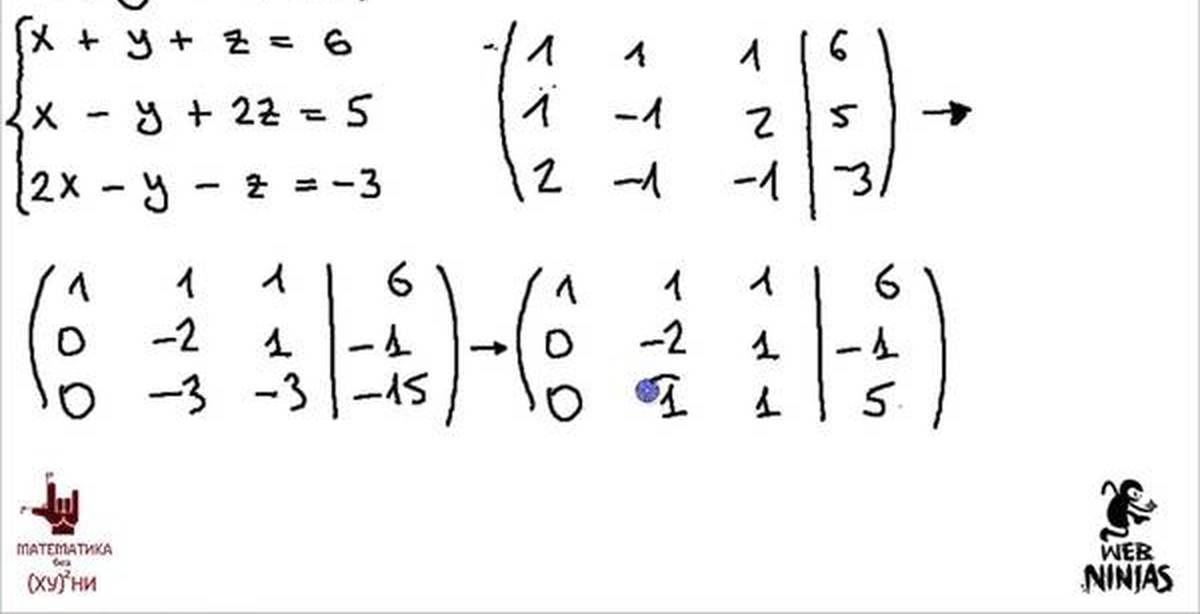 x + y + z = 6
x - y + 2z = 5
2x - y - z = -3
1 1 1 | 6
1 -1 2 | 5
2 -1 -1 | -3
→
1 1 1 | 6
0 -2 1 | -1
0 -3 -3 | -15
→
1 1 1 | 6
0 -2 1 | -1
0 1 1 | 5
МАТЕМАТИКА
без
(ХУ)²НИ
WEB
NINJAS